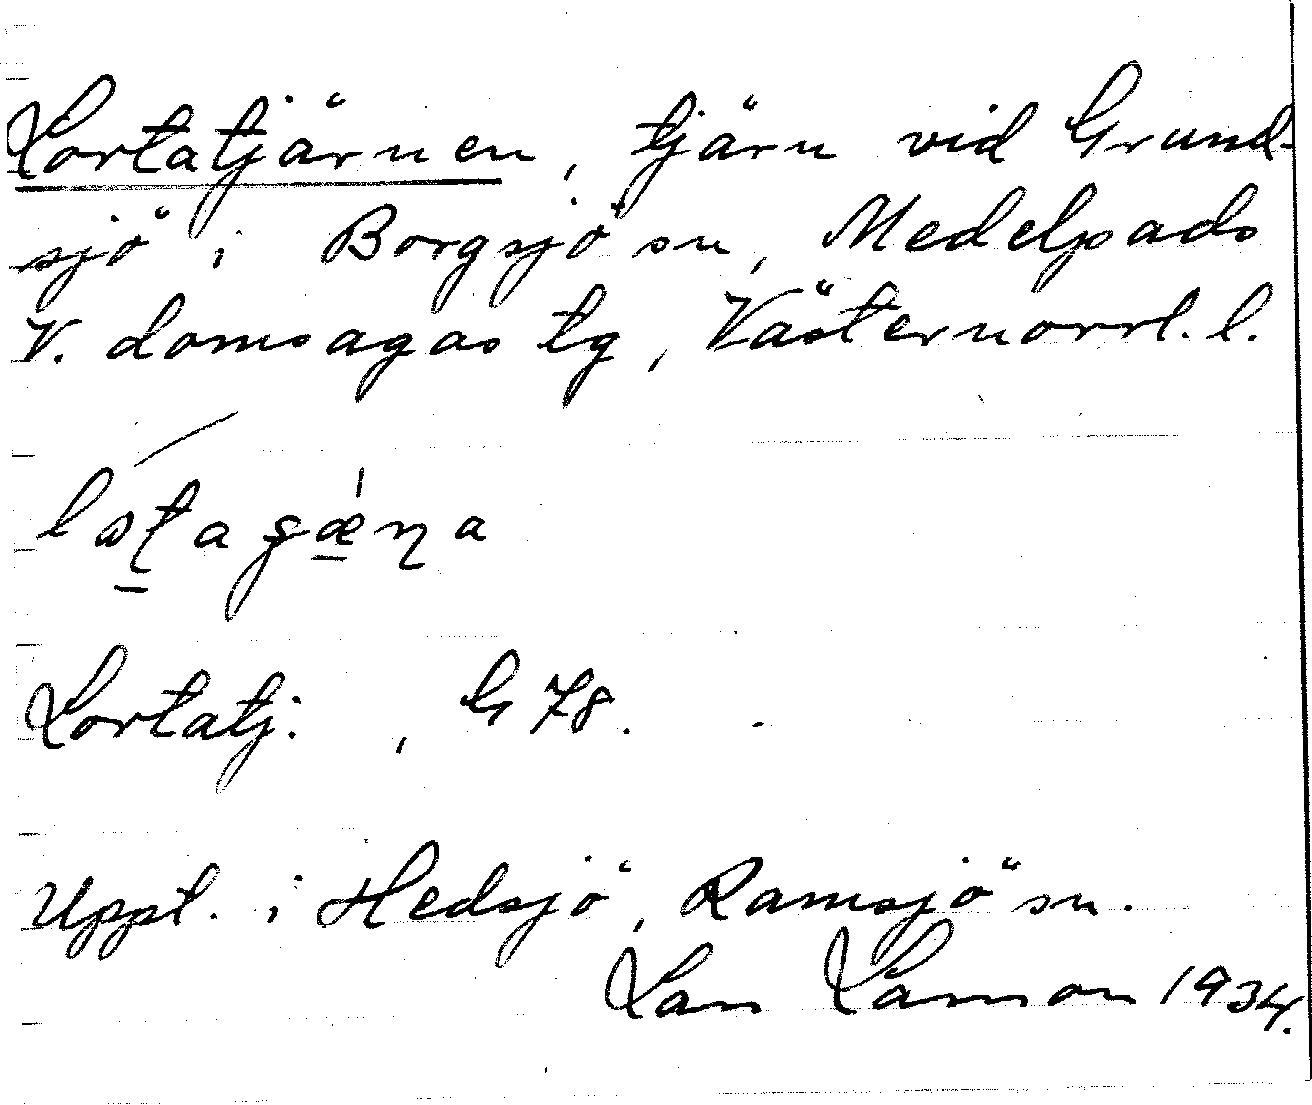 Lortatjärnen, tjärn vid Grund-
sjö i Borgsjö sn, Medelpads
V. domsagas tg, Västernorrl. l.
Lortatj. , G 78.
Uppt. i Hedsjö, Ramsjö sn.
Lars Larsson 1934.